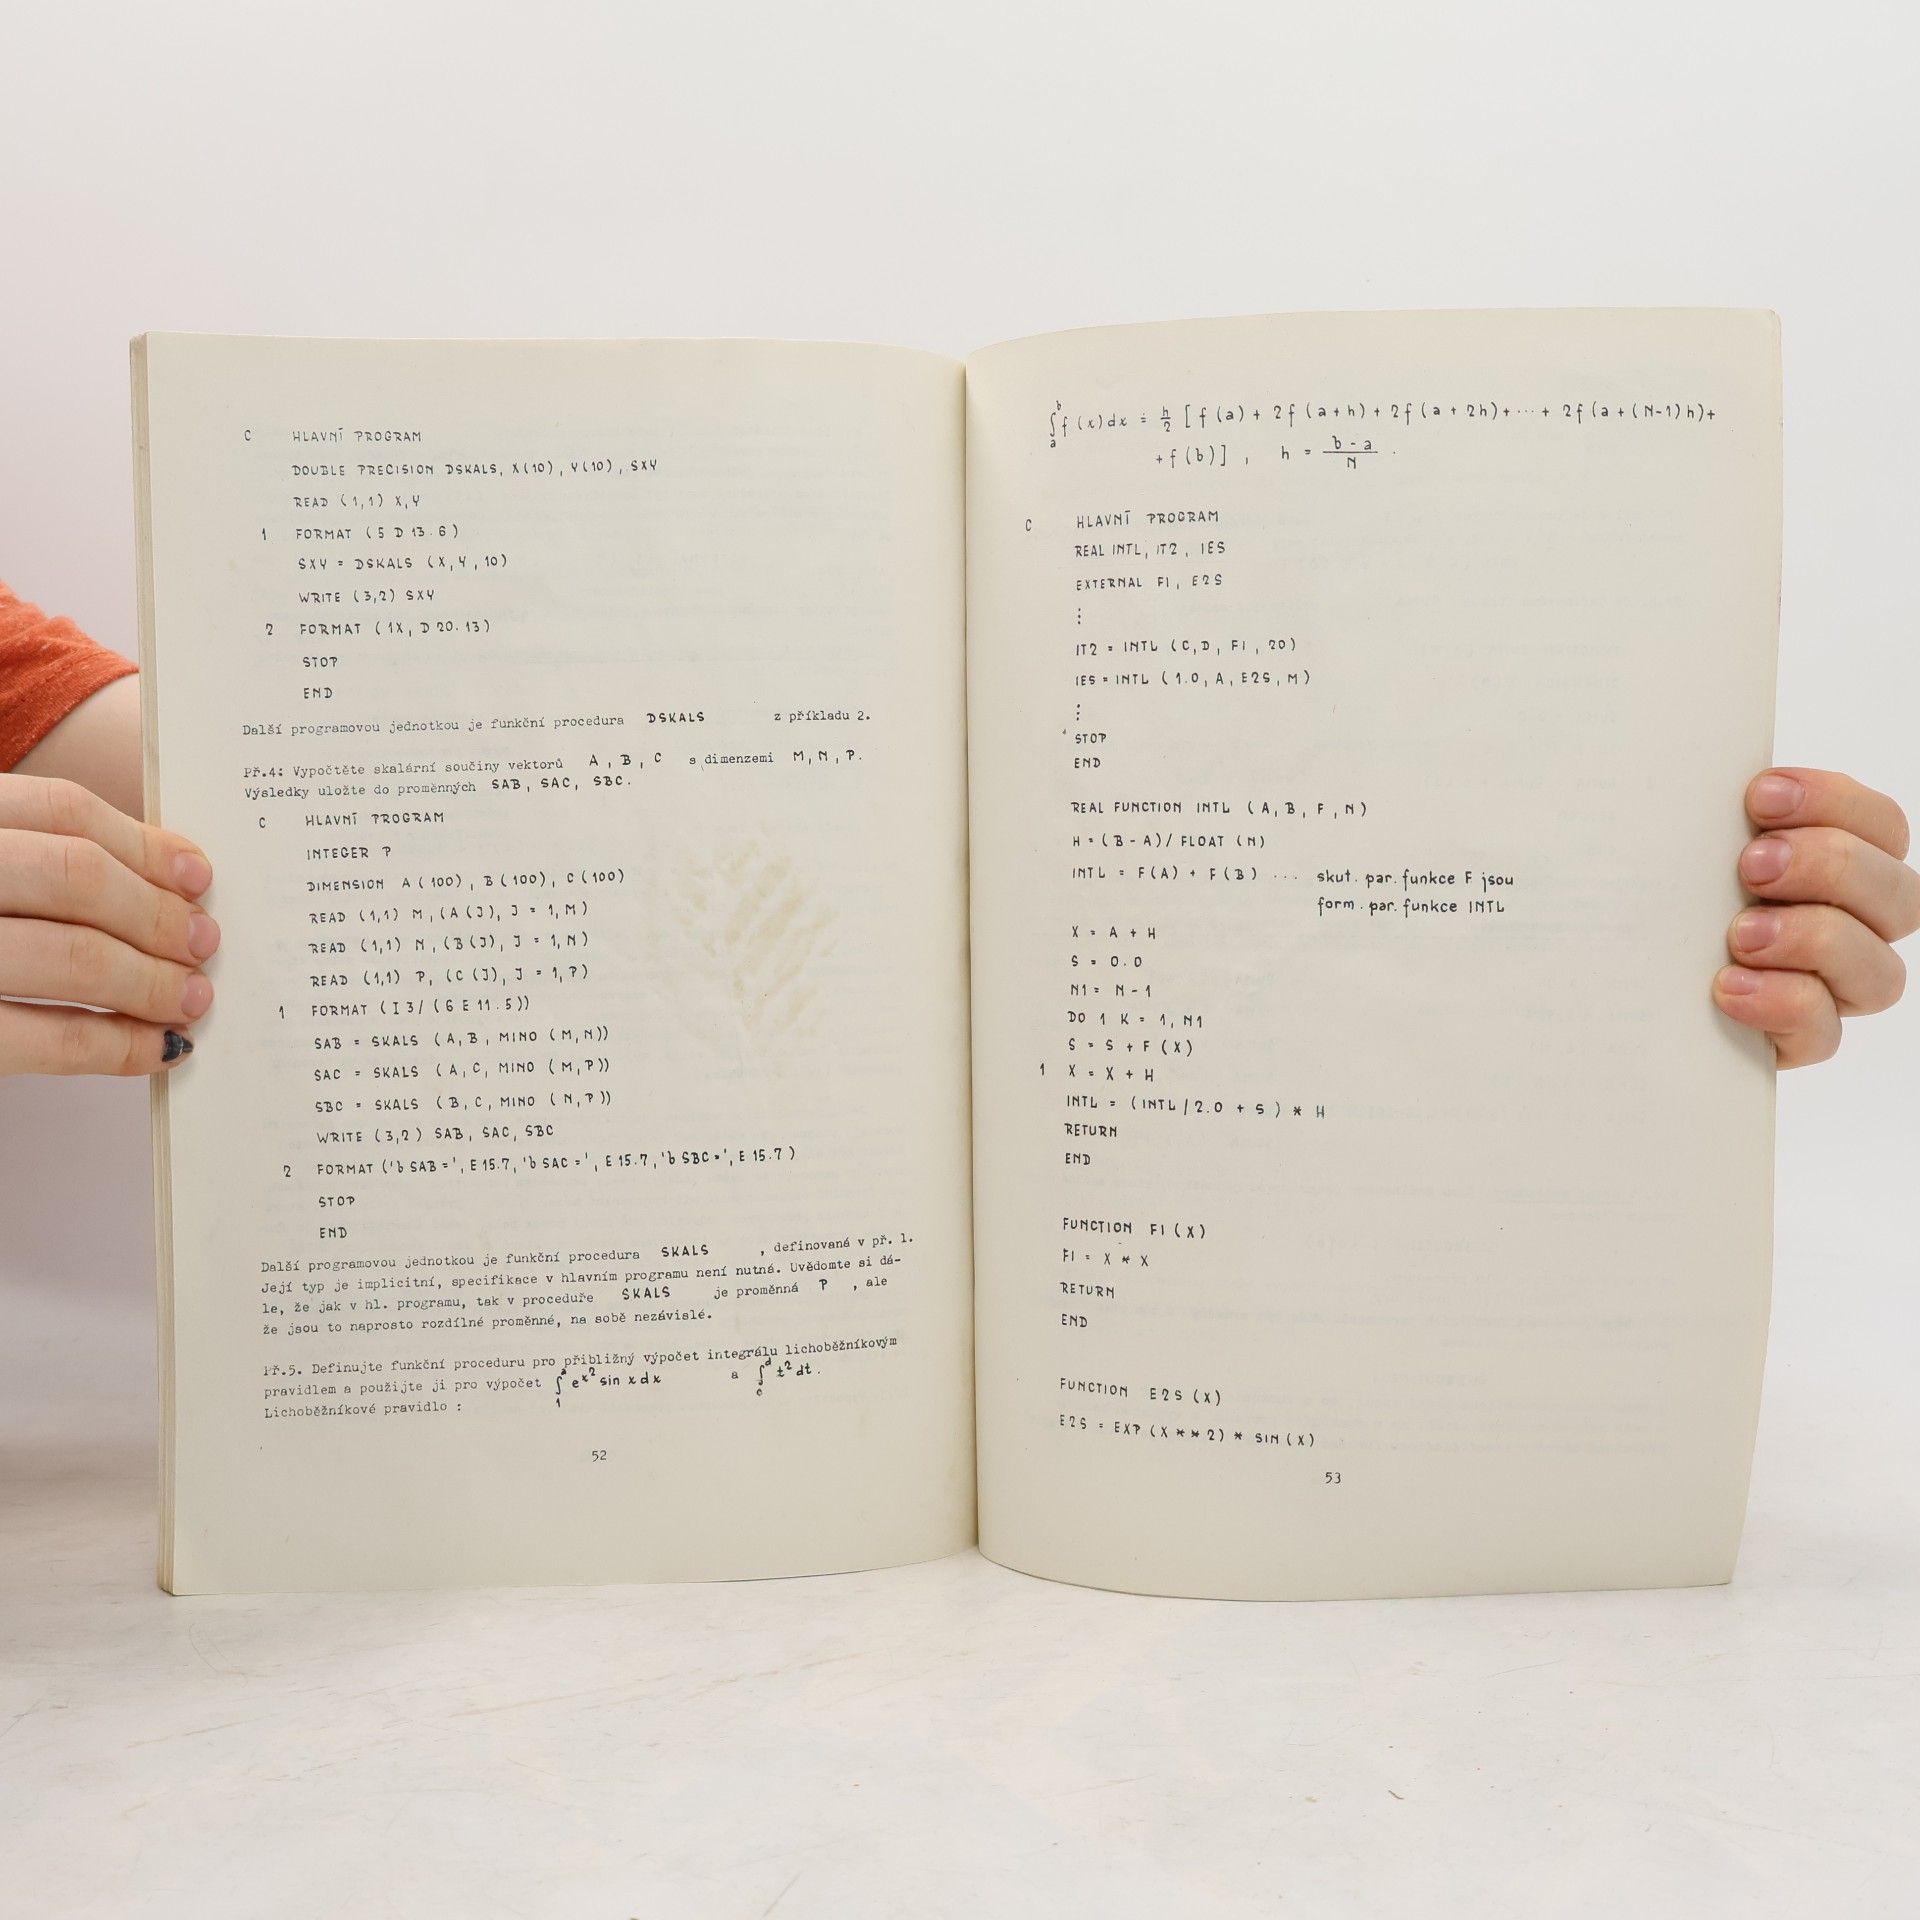 C HLAVNÍ PROGRAM
DOUBLE PRECISION DSKALS, X(10), Y(10), SXY
READ (1,1) X,Y
1 FORMAT (5 D 13.6)
SXY = DSKALS (X,Y,10)
WRITE (3,2) SXY
2 FORMAT (1X, D 20.13)
STOP
END
Další programovou jednotkou je funkční procedura DSKALS z příkladu 2.
Př.4: Vypočtěte skalární součiny vektorů A, B, C s dimenzemi M, N, P.
Výsledky uložte do proměnných SAB, SAC, SBC.
C HLAVNÍ PROGRAM
INTEGER P
DIMENSION A(100), B(100), C(100)
READ (1,1) M, (A(J), J = 1, M)
READ (1,1) N, (B(J), J = 1, N)
READ (1,1) P, (C(J), J = 1, P)
1 FORMAT (I 3/ (6 E 11.5))
SAB = SKALS (A, B, MINO (M,N))
SAC = SKALS (A, C, MINO (M,P))
SBC = SKALS (B, C, MINO (N,P))
WRITE (3,2) SAB, SAC, SBC
2 FORMAT ('b SAB =', E 15.7, 'b SAC =', E 15.7, 'b SBC =', E 15.7)
STOP
END
Další programovou jednotkou je funkční procedura SKALS , definovaná v př. 1.
Její typ je implicitní, specifikace v hlavním programu není nutná. Uvědomte si dá-
le, že jak v hl. programu, tak v proceduře SKALS je proměnná P , ale
že jsou to naprosto rozdílné proměnné, na sobě nezávislé.
Př.5. Definujte funkční proceduru pro přibližný výpočet integrálu lichoběžníkovým
pravidlem a použijte ji pro výpočet ∫₁ᵃ eˣ² sin x dx a ∫_c^d t² dt.
Lichoběžníkové pravidlo :
52
∫ₐᵇ f(x)dx ≐ h/2 [f(a) + 2f(a+h) + 2f(a+2h) + ··· + 2f(a+(N-1)h) +
+ f(b)] , h = (b-a)/N .
C HLAVNÍ PROGRAM
REAL INTL, IT2, IES
EXTERNAL F1, E2S
⋮
IT2 = INTL (C, D, F1, 20)
IES = INTL (1.0, A, E2S, M)
⋮
STOP
END
REAL FUNCTION INTL (A, B, F, N)
H = (B - A)/ FLOAT (N)
INTL = F(A) + F(B) ... skut. par. funkce F jsou
form. par. funkce INTL
X = A + H
S = 0.0
N1 = N - 1
DO 1 K = 1, N1
S = S + F(X)
1 X = X + H
INTL = (INTL/2.0 + S) * H
RETURN
END
FUNCTION F1 (X)
F1 = X * X
RETURN
END
FUNCTION E2S (X)
E2S = EXP (X ** 2) * SIN (X)
53